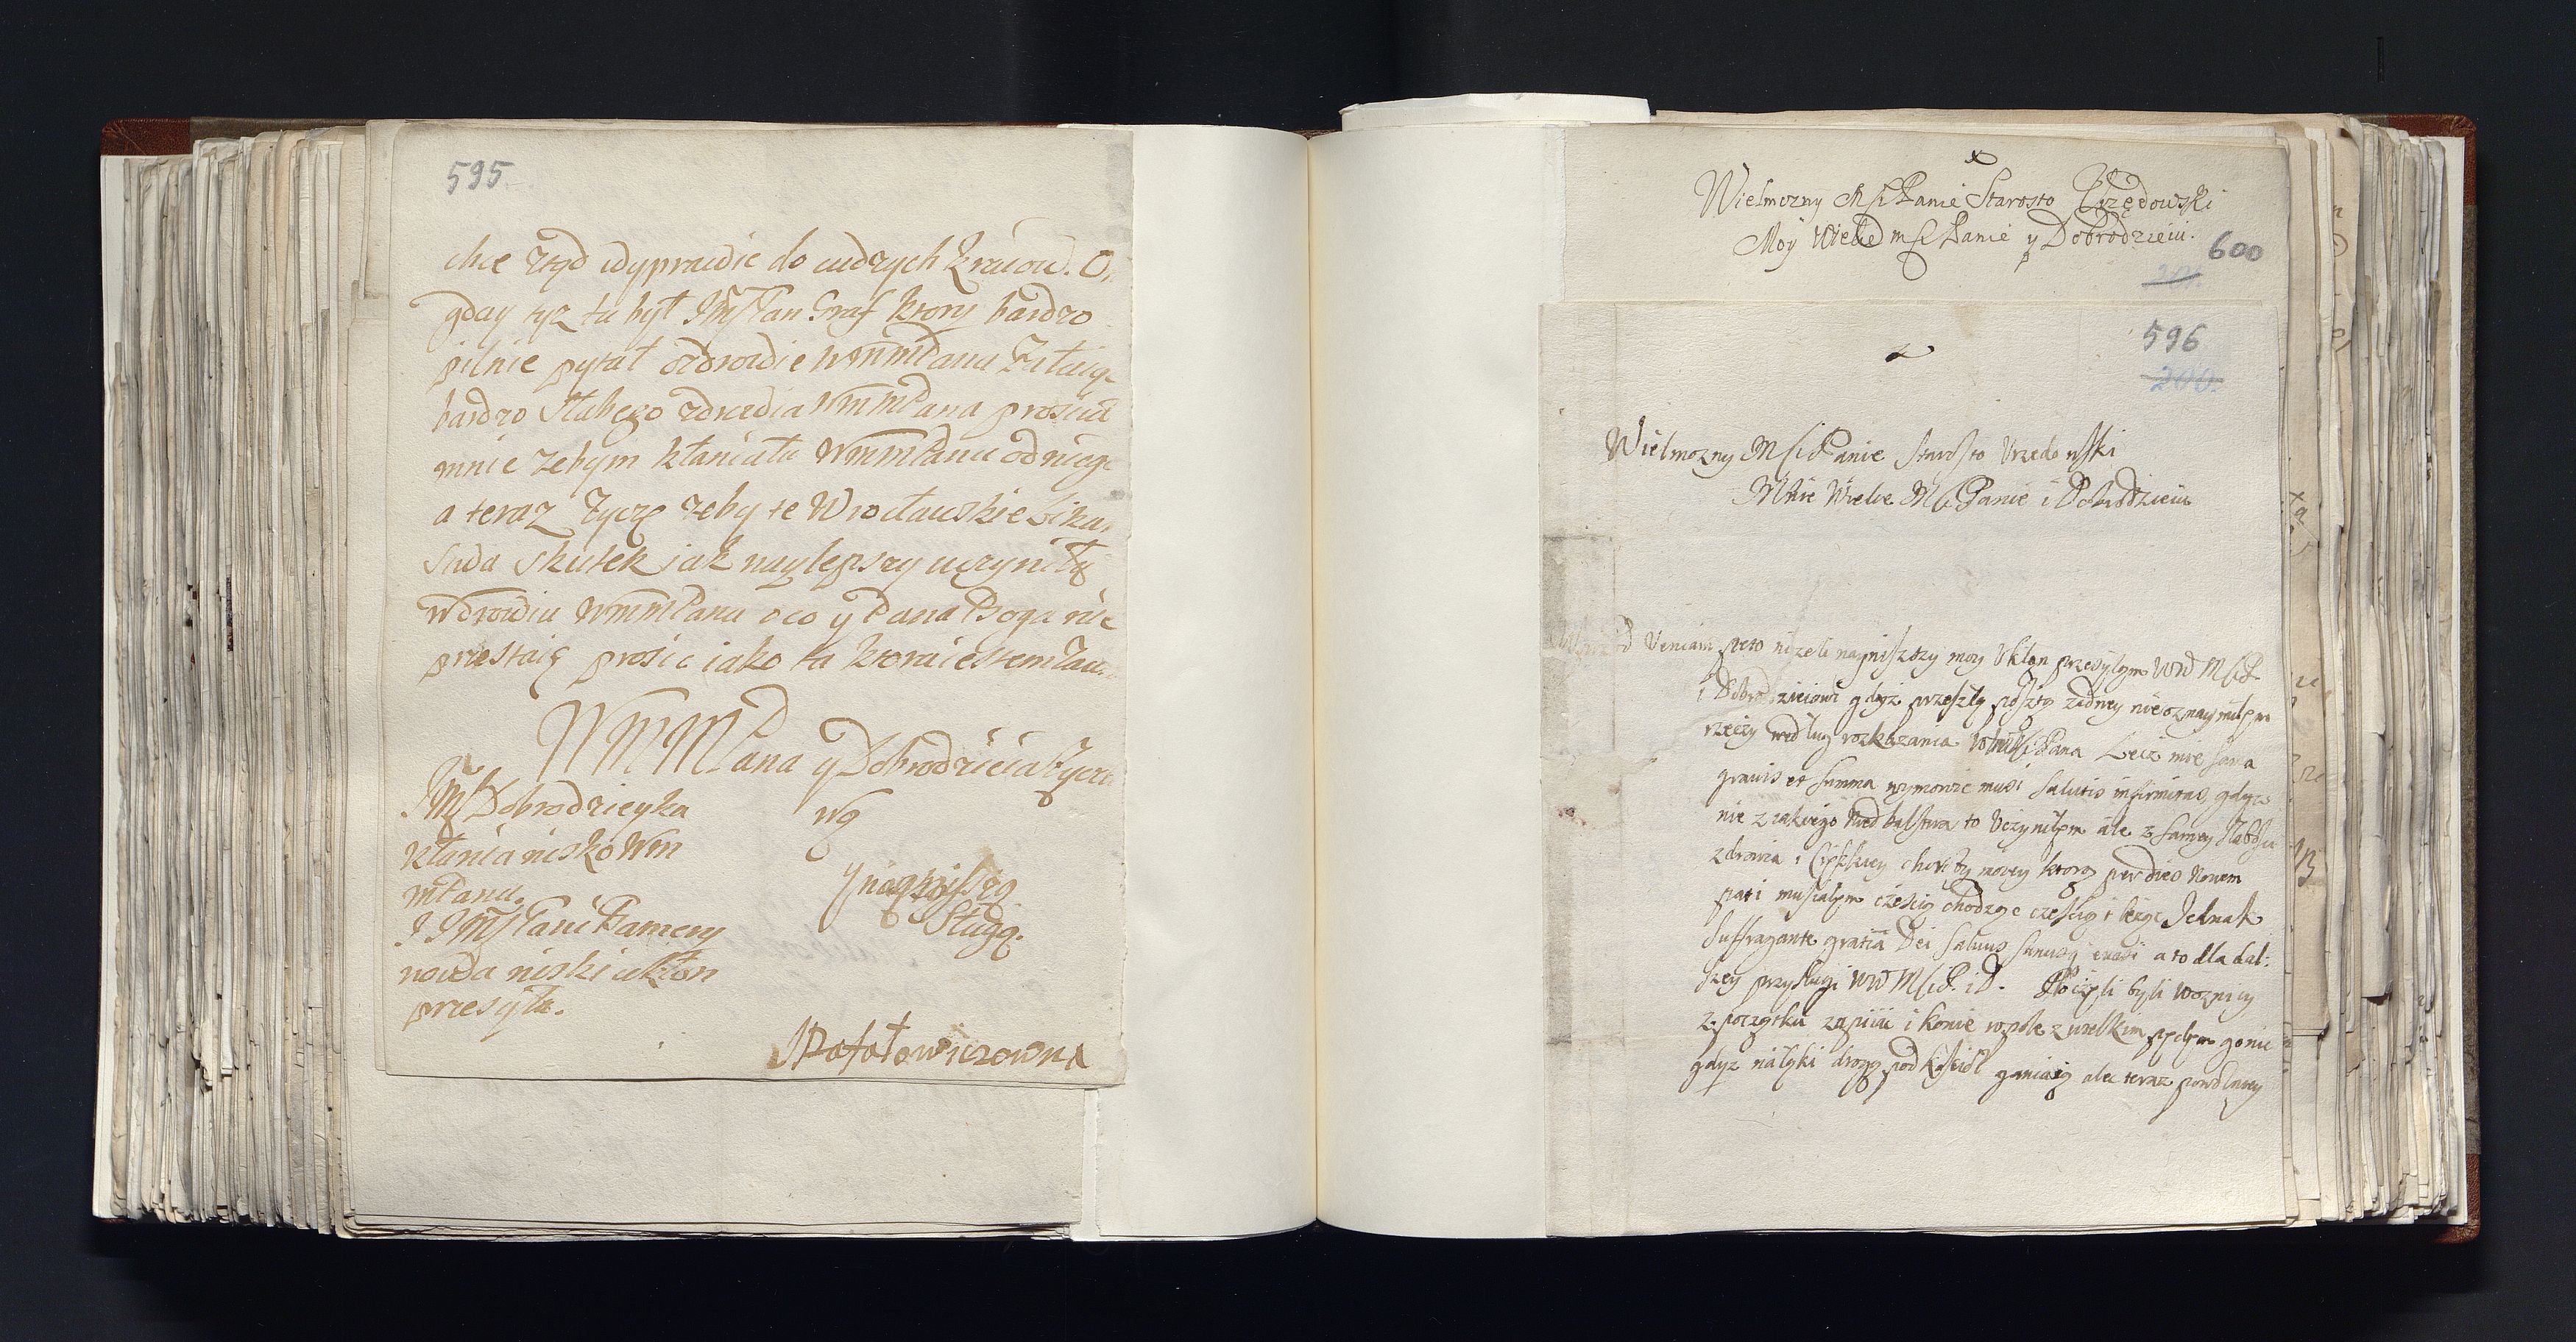 595
chce ztąd wyprawic do cudzych kraiow. O,
gday tyz tu był JMsPan Graf ktory bardzo
pilnie pytał ozdrowie WMMPana
bardzo słabego zdrowia WMMPana prosiła
mnie zebym kłaniała WMMPanu od niego
a teraz zyczę zeby te Wrocławskie lika,
skutek jak naylepszy uczyniły
w zdrowiu WMMPana o co y Pana Boga nie
przestaię prosic iako ta ktora iestem
WMMPana y Dobrodzieia zyczą
wą
JMs Dobrodzieyka
kłania nisko Wm
mPanu.
y nayniszszą
Sługą.
J JMsPani Kamery
nowa niski ukłon
przesyła.
JRafałowiczowna
Wielmozny MsciPanie Starosto Urzędowski
Moy Wielce MsciPanie y Dobrodzieiu.
600
201.
596
200.
Wielmozny MsciPanie Starosto Urzedowski
Mnie Wielce MsciPanie i Dobrodzieiu
Veniam peto nizeli nayniszszy moy Uklon przesylam WW MsciP
i Dobrodzieiowi gdyz przeszłą posztą zadney nieoznaymiłem
rzeczy według rozkazania WMMsciPana Lecz mie
grauis et summa wymowic musi salutis infirmitas, gdyz
nie z iakiego niedbalstwa to Uczyniłem ale z samey słabosci
zdrowia i cięszkiey choroby moiey ktorą per dies Nouem
pati musiałem częscią chodząc częscią i leząc Jednak
Suffragante gratia Dei saluus sanusq euasi a to dla dal:
szey przysługi WW MsciP. i D. Poczęli byli Woznicy
z początku zapiiac i konie z wielkim pędem gonic
gdyz na łyki drogą pod Kosciół ganiaią ale teraz